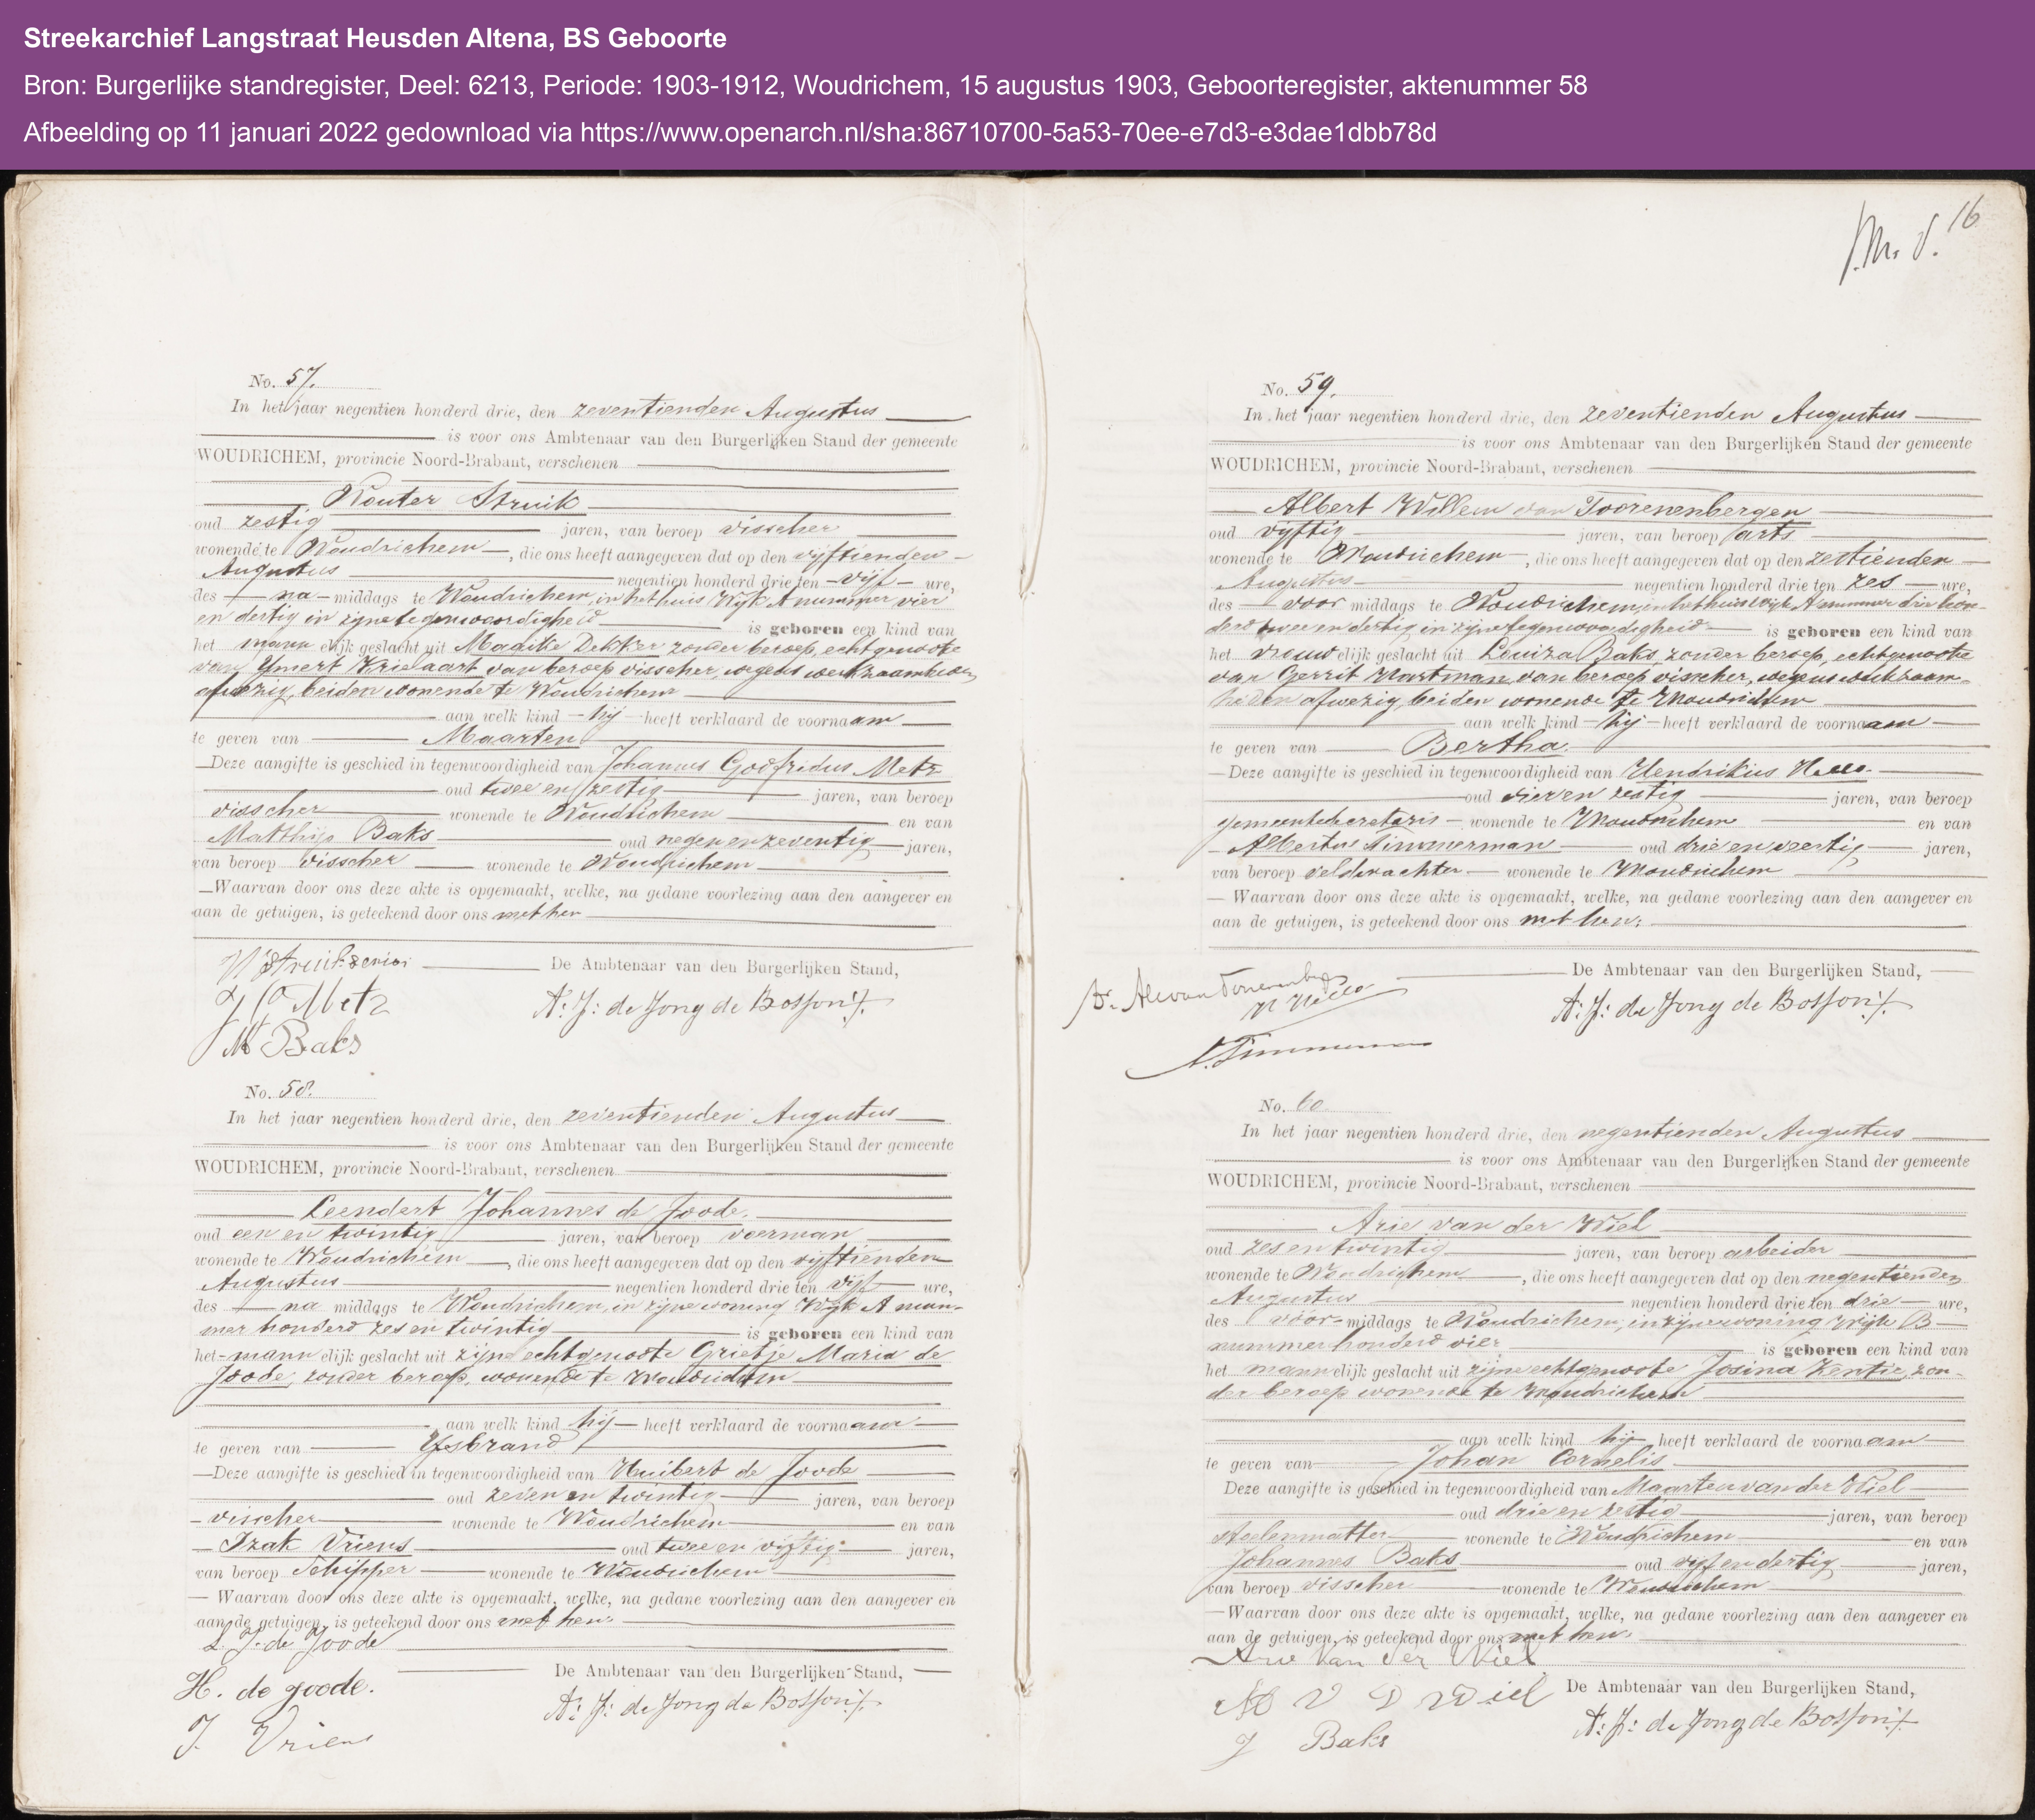 Streekarchief Langstraat Heusden Altena, BS Geboorte
Bron: Burgerlijke standregister, Deel: 6213, Periode: 1903-1912, Woudrichem, 15 augustus 1903, Geboorteregister, aktenummer 58
Afbeelding op 11 januari 2022 gedownload via https://www.openarch.nl/sha:86710700-5a53-70ee-e7d3-e3dae1dbb78d
No. 57.
In het jaar negentien honderd drie, den zeventienden Augustus
is voor ons Ambtenaar van den Burgerlijken Stand der gemeente
WOUDRICHEM, provincie Noord-Brabant, verschenen
Wouter Struik
oud zestig jaren, van beroep visscher
wonende te Woudrichem, die ons heeft aangegeven dat op den vijftienden
Augustus negentien honderd drie ten vijf ure,
des na middags te Woudrichem, in het huis Wijk A nummer vier
en dertig in zijne tegenwoordigheid is geboren een kind van
het mannelijk geslacht uit Dekker zonder beroep, echtgenoote
van Ymert Krielaart van beroep visscher, wegens werkzaamheden
afwezig, beiden wonende te Woudrichem
aan welk kind hij heeft verklaard de voornaam
te geven van Maarten
Deze aangifte is geschied in tegenwoordigheid van Johannes Godfridus Metz
oud twee en zestig jaren, van beroep
visscher wonende te Woudrichem en van
Matthijs Baks oud negen en zeventig jaren,
van beroep visscher wonende te Woudrichem
Waarvan door ons deze akte is opgemaakt, welke, na gedane voorlezing aan den aangever en
aan de getuigen, is geteekend door ons met hen
W Struik senior De Ambtenaar van den Burgerlijken Stand,
J G Metz A. J: de Jong de Bosson
M Baks
No. 58.
In het jaar negentien honderd drie, den zeventienden Augustus
is voor ons Ambtenaar van den Burgerlijken Stand der gemeente
WOUDRICHEM, provincie Noord-Brabant, verschenen
Leendert Johannes de Joode
oud een en twintig jaren, van beroep voerman
wonende te Woudrichem, die ons heeft aangegeven dat op den vijftienden
Augustus negentien honderd drie ten vijf ure,
des na middags te Woudrichem, in zijne woning Wijk A num-
mer honderd zes en twintig is geboren een kind van
het mannelijk geslacht uit zijne echtgenoote Grietje Maria de
Joode, zonder beroep, wonende te Woudrichem
aan welk kind hij heeft verklaard de voornaam
te geven van Ysbrand
Deze aangifte is geschied in tegenwoordigheid van Huibert de Joode
oud zeven en twintig jaren, van beroep
visscher wonende te Woudrichem en van
Izak Vriens oud twee en vijftig jaren,
van beroep Schipper wonende te Woudrichem
Waarvan door ons deze akte is opgemaakt, welke, na gedane voorlezing aan den aangever en
aan de getuigen, is geteekend door ons met hen.
L. J. de Joode
H. de goode. De Ambtenaar van den Burgerlijken Stand,
J. Vriens A. J: de Jong de Bosson
J.M. d. 16
No. 59.
In het jaar negentien honderd drie, den zeventienden Augustus
is voor ons Ambtenaar van den Burgerlijken Stand der gemeente
WOUDRICHEM, provincie Noord-Brabant, verschenen
Albert Willem van Toorenenbergen
oud vijftig jaren, van beroep arts
wonende te Woudrichem, die ons heeft aangegeven dat op den zestienden
Augustus negentien honderd drie ten zes ure,
des voor middags te Woudrichem, in het huis wijk A nummer drie hon-
derd twee en dertig in zijne tegenwoordigheid is geboren een kind van
het vrouwelijk geslacht uit Louiza Baks, zonder beroep, echtgenoote
van Gerrit Hartman van beroep visscher, wegens werkzaam-
heden afwezig, beiden wonende te Woudrichem
aan welk kind hij heeft verklaard de voornaam
te geven van Bertha.
Deze aangifte is geschied in tegenwoordigheid van Hendrikus
oud vier en zestig jaren, van beroep
gemeentesecretaris wonende te Woudrichem en van
Albertus Timmerman oud drie en veertig jaren,
van beroep veldwachter wonende te Woudrichem
Waarvan door ons deze akte is opgemaakt, welke, na gedane voorlezing aan den aangever en
aan de getuigen, is geteekend door ons met hen.
De Ambtenaar van den Burgerlijken Stand,
A. J: de Jong de Bosson
A. Timmerman
No. 60
In het jaar negentien honderd drie, den negentienden Augustus
is voor ons Ambtenaar van den Burgerlijken Stand der gemeente
WOUDRICHEM, provincie Noord-Brabant, verschenen
Arie van der Wiel
oud zes en twintig jaren, van beroep arbeider
wonende te Woudrichem, die ons heeft aangegeven dat op den negentienden
Augustus negentien honderd drie ten drie ure,
des vóór middags te Woudrichem, in zijne woning wijk B
nummer honderd vier is geboren een kind van
het mannelijk geslacht uit zijne echtgenoote Josina Kentie, zon-
der beroep wonende te Woudrichem
aan welk kind hij heeft verklaard de voornaam
te geven van Johan Cornelis
Deze aangifte is geschied in tegenwoordigheid van Maarten van der Wiel
oud drie en zestig jaren, van beroep
stoelenmatter wonende te Woudrichem en van
Johannes Baks oud vijf en dertig jaren,
van beroep visscher wonende te Woudrichem
Waarvan door ons deze akte is opgemaakt, welke, na gedane voorlezing aan den aangever en
aan de getuigen, is geteekend door ons met hen.
Arie Van Der Wiel
M V D Wiel De Ambtenaar van den Burgerlijken Stand,
J Baks A. J: de Jong de Bosson